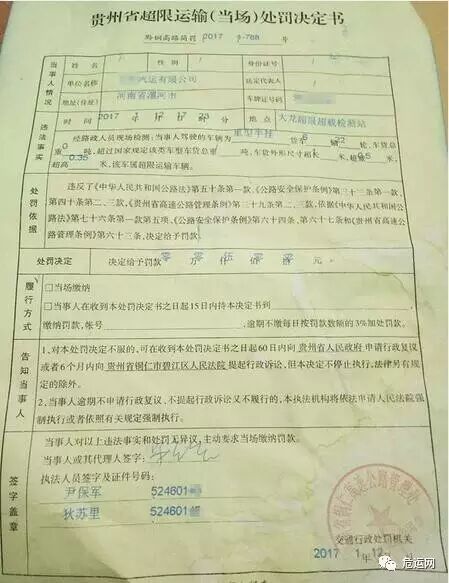 贵州省超限运输(当场)处罚决定书
黔铜高路简罚 2017 5-788 号
当事人情况
姓名 / 性别 / 身份证号 /
单位名称 汽运有限公司 法定代表人 /
地址(住址) 河南省漯河市 车牌证号码
违法事实
时间 2017 年 月 日 时 分 地点 大龙超限超载检测站
经路政人员现场检测:当事人驾驶的车辆为 重型半挂 货车
重 0 吨,超过国家规定该类型车货总重 吨,车货外形尺寸超 米,超
超高 0.35 米,该车属超限运输车辆。
处罚依据
违反了《中华人民共和国公路法》第五十条第一款,《公路安全保护条例》三十三条第一款,
第四十条第二、三款,《贵州省高速公路管理条例》三十九条第二、三款,依据《中华人民共和国公
路法》第七十六条第一款第五项、《公路安全保护条例》六十四条、第六十七条和《贵州省高速公
路管理条例》六十三条,决定给予罚款
处罚决定 决定给予罚款 零 万 零 仟 伍 佰 零 拾 零 元
履行方式
□当场缴纳
□当事人在收到本处罚决定书之日起15日内持本决定书到
缴纳罚款,帐号 ,逾期不缴每日按罚款数额的3%加处罚款。
告知当事人
1、对本处罚决定不服的,可在收到本处罚决定书之日起60日内向 贵州省人民政府 申请行政复议
或者6个月内向 贵州省铜仁市碧江区人民法院 提起行政诉讼,但本决定不停止执行,法律另有规
定的除外。
2、当事人逾期不申请行政复议、不提起行政诉讼又不履行的,本执法机构将依法申请人民法院强
制执行或者依照有关规定强制执行。
签字盖章
当事人对以上违法事实和处罚无异议,主动要求当场缴纳罚款。
当事人或其代理人签字:
执法人员签字及证件号码:
尹保军 524601
狄苏里 524601
交通行政处罚机关
2017 年 12 日
危运网